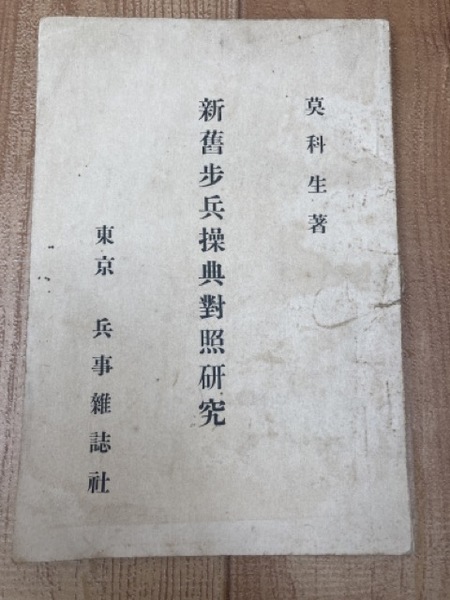 莫科生著
新舊步兵操典對照研究
東京 兵事雜誌社